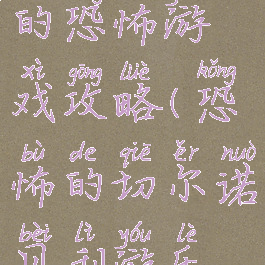 的恐怖游
xì gōng lüè kǒng
戏攻略(恐
bù de qiē ěr nuò
怖的切尔诺
bèi lì yóu lè
贝利游乐